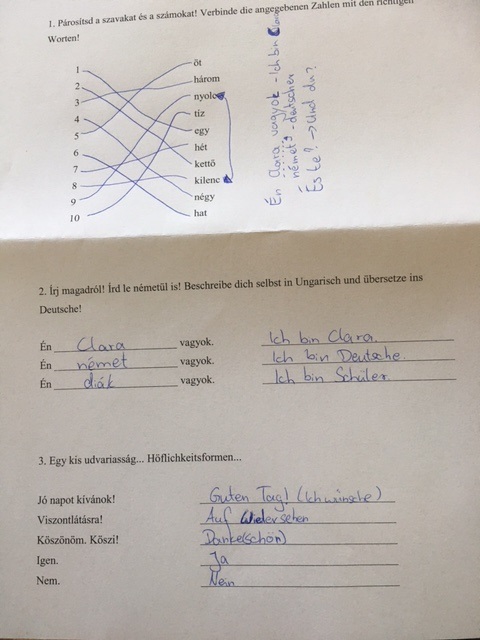 1. Párosítsd a szavakat és a számokat! Verbinde die angegebenen Zahlen mit den richtigen
Worten!
1 öt
2 három
3 nyolc
4 tíz
5 egy
6 hét
7 kettő
8 kilenc
9 négy
10 hat
Én Clara vagyok - Ich bin Clara
német - deutscher
És te? → Und du?
2. Írj magadról! Írd le németül is! Beschreibe dich selbst in Ungarisch und übersetze ins
Deutsche!
Én Clara vagyok. Ich bin Clara.
Én német vagyok. Ich bin Deutsche.
Én diák vagyok. Ich bin Schüler.
3. Egy kis udvariasság... Höflichkeitsformen...
Jó napot kívánok! Guten Tag! (Ich wünsche)
Viszontlátásra! Auf Wiedersehen
Köszönöm. Köszi! Danke(schön)
Igen. Ja
Nem. Nein